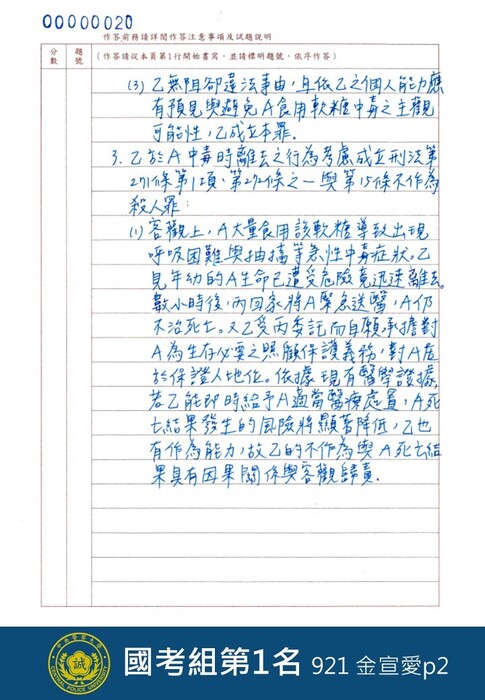 00000020
作答前務請詳閱作答注意事項及試題說明
分數
題號
(作答請從本頁第1行開始書寫,並請標明題號,依序作答)
(3) 乙無阻卻違法事由,且依乙之個人能力應
有預見與避免A食用軟糖中毒之主觀
可能性,乙成立本罪。
3. 乙於A中毒時離去之行為考慮成立刑法第
271條第1項、第272條之一與第15條不作為
殺人罪:
(1) 客觀上,A大量食用該軟糖導致出現
呼吸困難與抽搐等急性中毒症狀。乙
見年幼的A生命已遭受危險竟迅速離去。
數小時後,丙回家將A緊急送醫,A仍
不治死亡。又乙受丙委託而自願承擔對
A為生存必要之照顧保護義務,對A居
於保證人地位。依據現有醫學證據,
若乙能即時給予A適當醫療處置,A死
亡結果發生的風險將顯著降低,乙也
有作為能力,故乙的不作為與A死亡結
果具有因果關係與客觀歸責。
誠
CENTRAL POLICE UNIVERSITY
國考組第1名 921 金宣愛p2